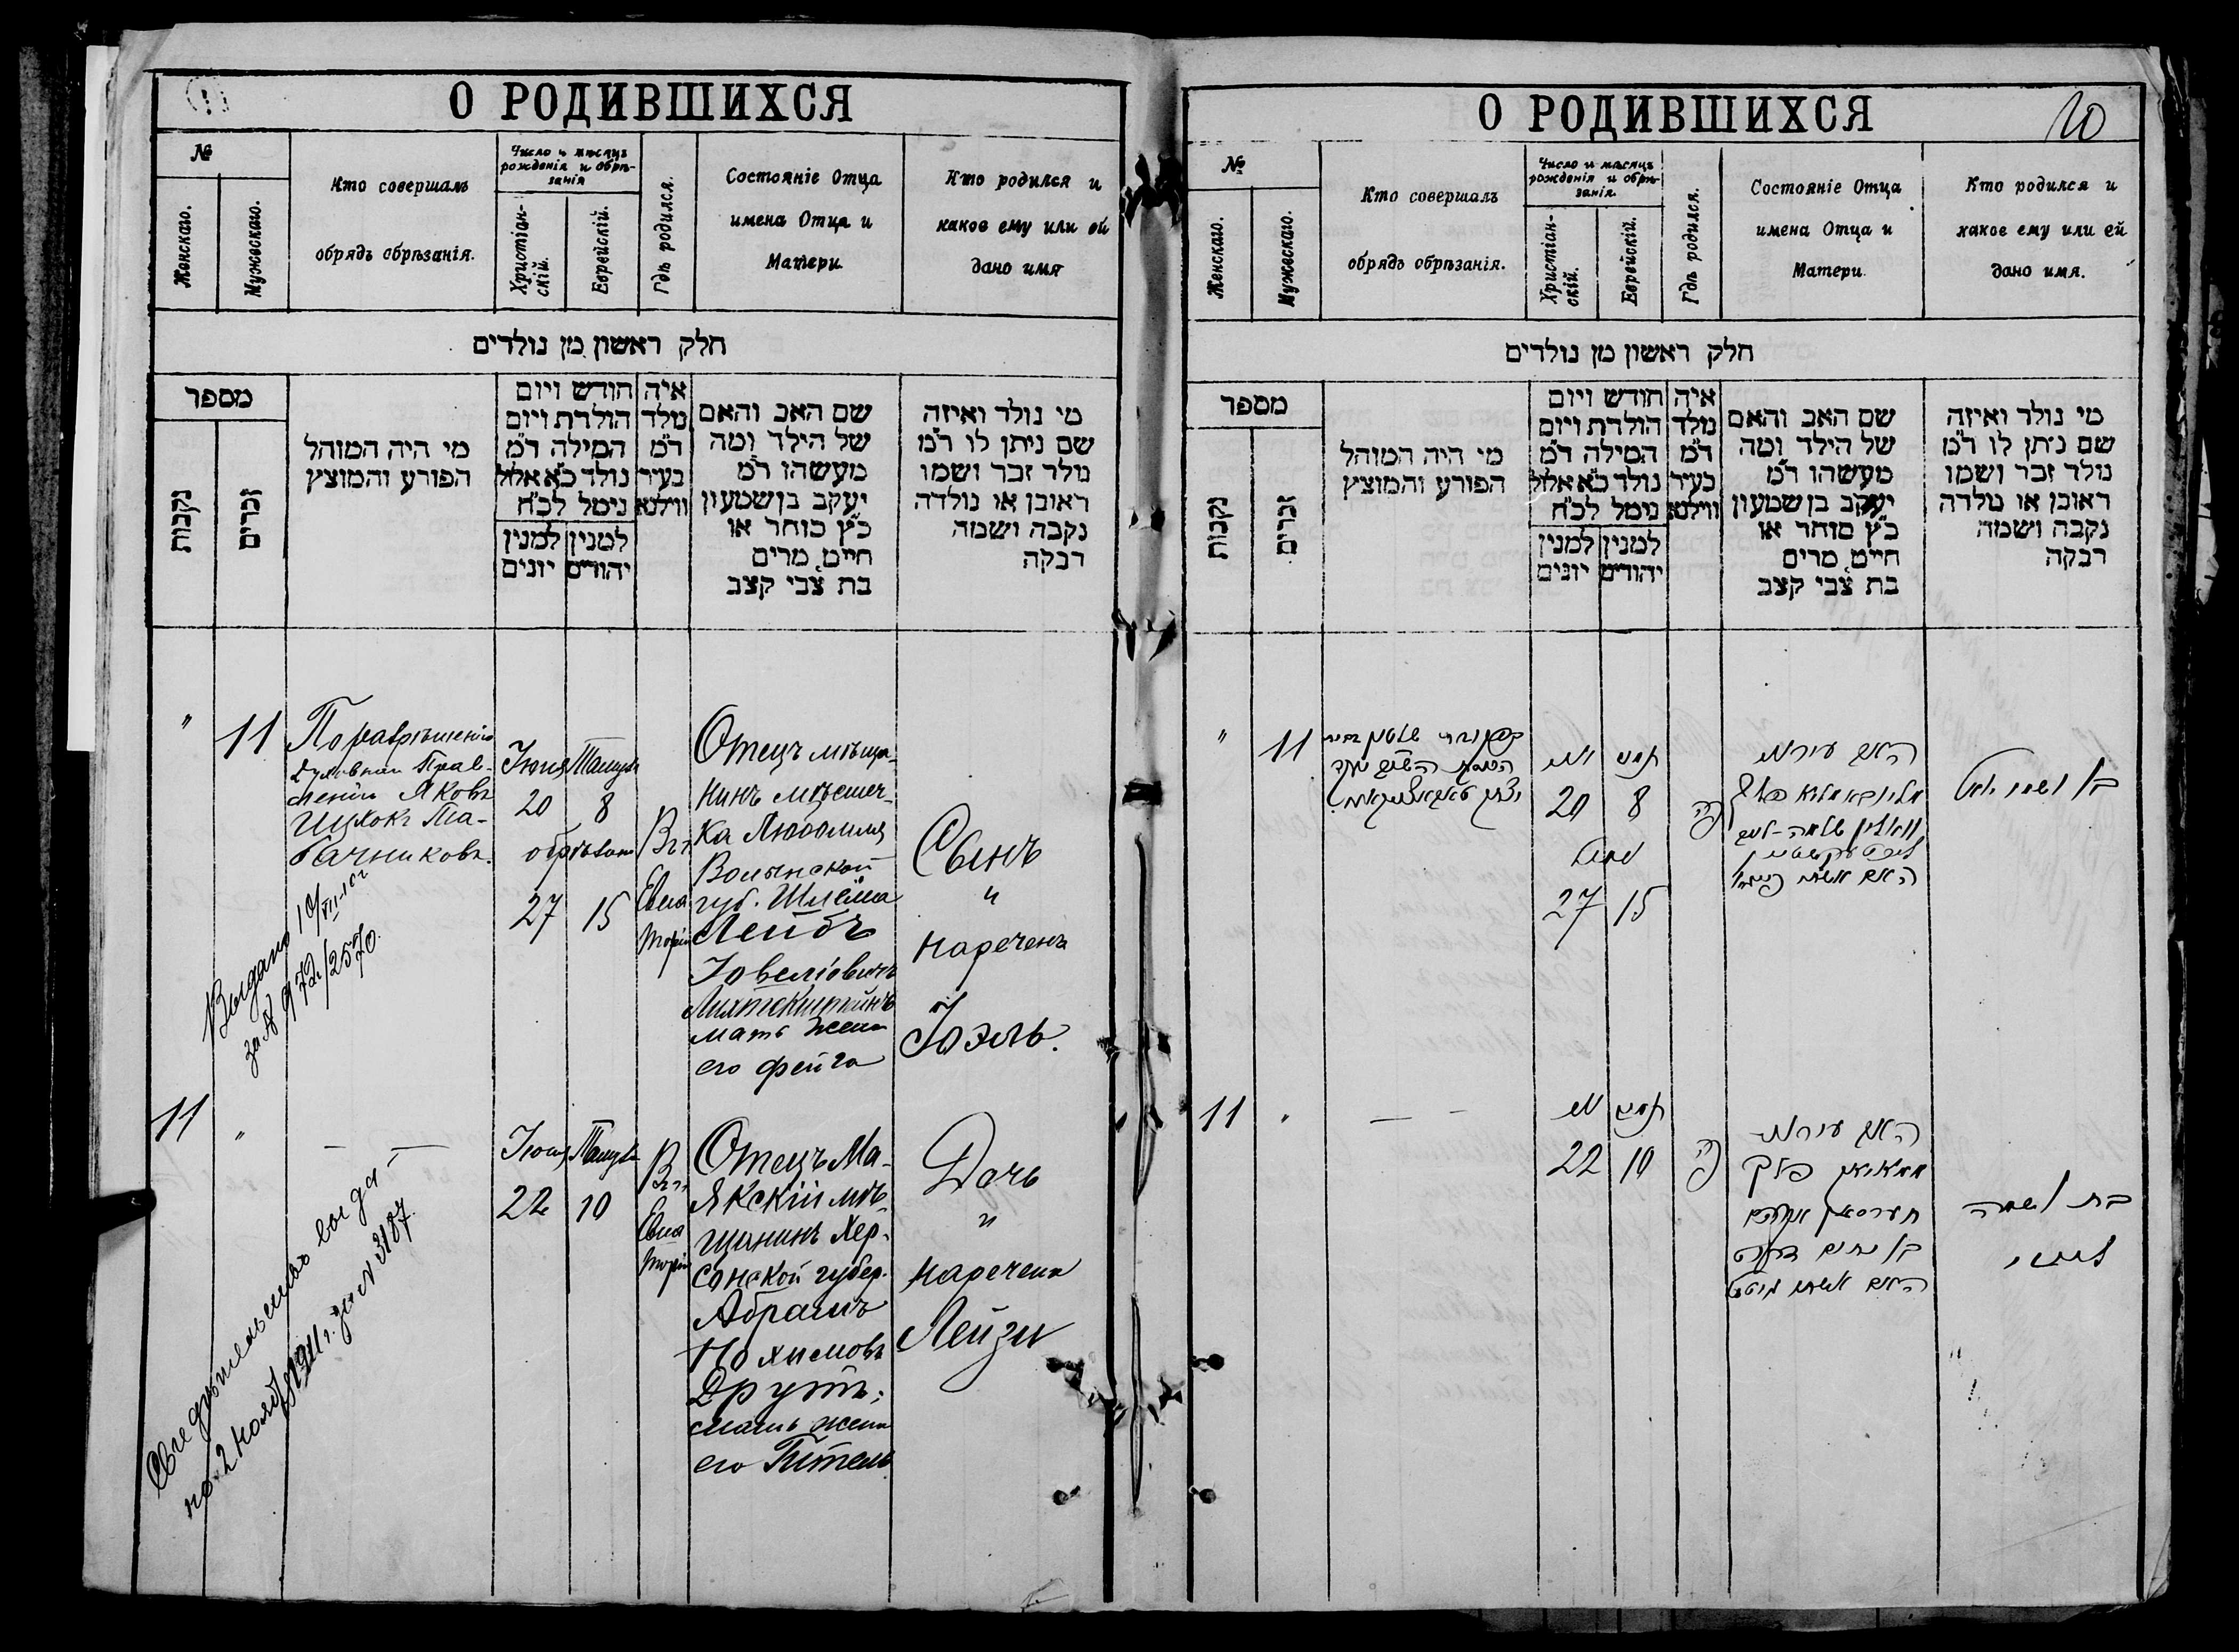 О РОДИВШИХСЯ
№
Женскаго.
Мужескаго.
Кто совершалъ
обрядъ обрѣзанія.
Число и мѣсяцъ
рожденія и обрѣ-
занія
Христіан-
скій.
Еврейскій.
Гдѣ родился.
Состояніе Отца
имена Отца и
Матери
Кто родился и
какое ему или ей
дано имя
חלק ראשון מן נולדים
מספר
נקבות
זכרים
מי היה המוהל
הפורע והמוצץ
חודש ויום
הולדת ויום
המילה ד״מ
נולד כ״א אלול
נימל לכ״ח
למנין
יהודים
למנין
יונים
איה
נולד
ד״מ
בעיר
ווילנא
שם האב והאם
של הילד ומה
מעשהו ד״מ
יעקב בן שמעון
כ״ץ סוחר או
חייט מרים
בת צבי קצב
מי נולד ואיזה
שם ניתן לו ד״מ
נולד זכר ושמו
ראובן או נולדה
נקבה ושמה
רבקה
" 11
По разрѣшенію
Духовнаго Прав-
ленія Яковъ
Ицхокъ Та-
бачниковъ.
Іюня Тамуза
20 8
обрѣзанъ
27 15
Въ г.
Евпа
торіи
Отецъ мѣща-
нинъ мѣстеч-
ка Любомля
Волынской
губ. Шлема
Лейбъ
Іовеліовичъ
Лихтекштейнъ
мать жена
его Фейга
Сынъ
"
нареченъ
Іоэль.
Выдано 10/VII-10 г
за № 972/2570.
11 "
— —
Іюня Тамуза
22 10
Въ г.
Евпа
торіи
Отецъ Ма-
якскій мѣ-
щанинъ Хер-
сонской губер.
Абрамъ
Нохимовъ
Друтъ;
мать жена
его Гитель
Дочь
"
наречена
Лейзи
Свидѣтельство выда-
но 2 Ноября 1911 г. за № 3187.
О РОДИВШИХСЯ
10
№
Женскаго.
Мужескаго.
Кто совершалъ
обрядъ обрѣзанія.
Число и мѣсяцъ
рожденія и обрѣ-
занія.
Христіан-
скій.
Еврейскій.
Гдѣ родился.
Состояніе Отца
имена Отца и
Матери
Кто родился и
какое ему или ей
дано имя.
חלק ראשון מן נולדים
מספר
נקבות
זכרים
מי היה המוהל
הפורע והמוצץ
חודש ויום
הולדת ויום
המילה ד״מ
נולד כ״א אלול
נימל לכ״ח
למנין
יהודים
למנין
יונים
איה
נולד
ד״מ
בעיר
ווילנא
שם האב והאם
של הילד ומה
מעשהו ד״מ
יעקב בן שמעון
כ״ץ סוחר או
חייט מרים
בת צבי קצב
מי נולד ואיזה
שם ניתן לו ד״מ
נולד זכר ושמו
ראובן או נולדה
נקבה ושמה
רבקה
" 11
יוני תמוז
20 8
נימול
27 15
פה
האב עירוני
בן ושמו יואל
11 "
— —
יוני תמוז
22 10
פה
האב עירוני
בן נחום
האם אשתו גיטל
בת ושמה
לייזי